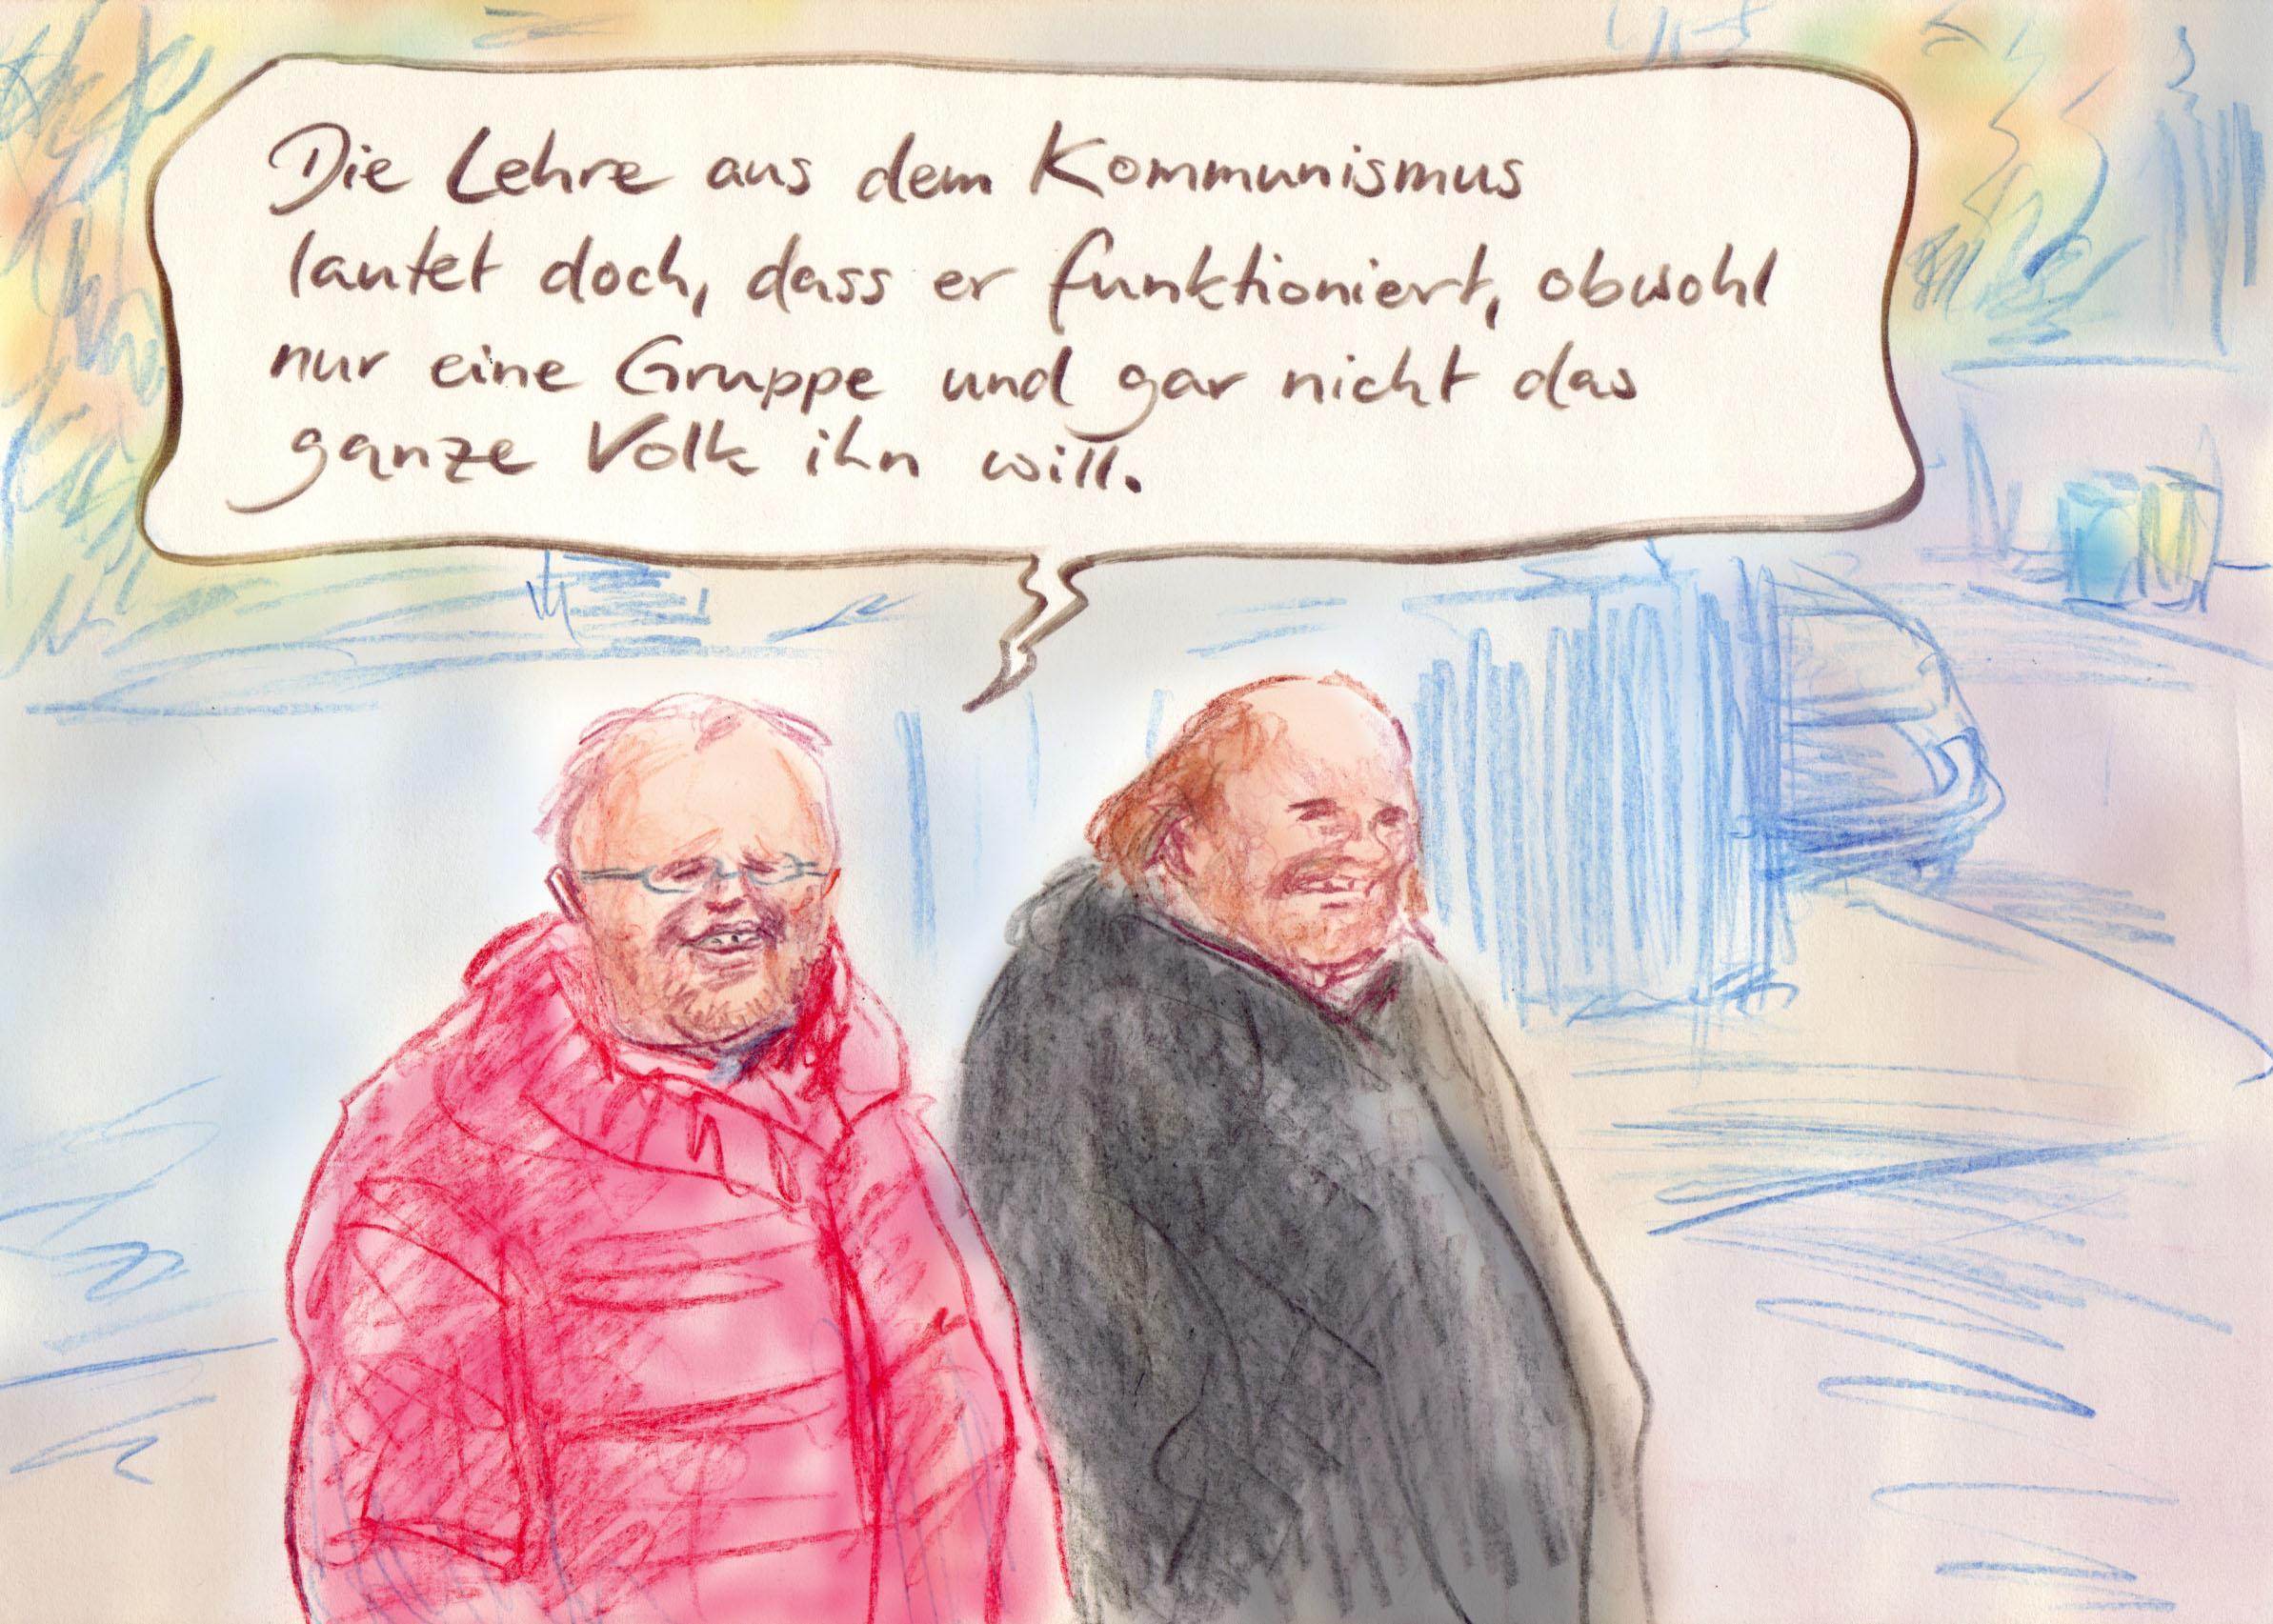 Die Lehre aus dem Kommunismus
lautet doch, dass er funktioniert, obwohl
nur eine Gruppe und gar nicht das
ganze Volk ihn will.